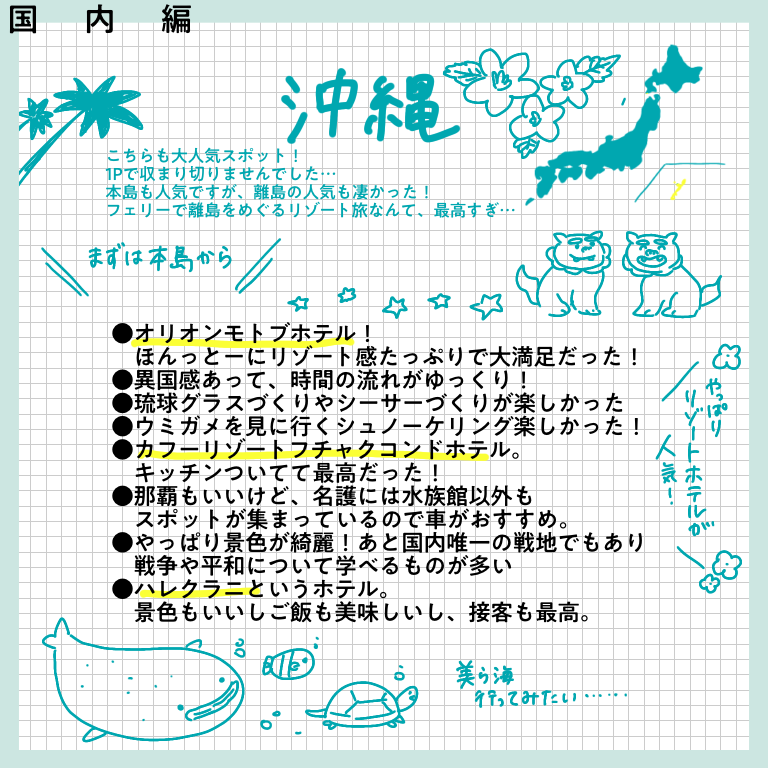 国内編
沖縄
こちらも大人気スポット！
1Pで収まり切りませんでした…
本島も人気ですが、離島の人気も凄かった！
フェリーで離島をめぐるリゾート旅なんて、最高すぎ…
まずは本島から
●オリオンモトブホテル！
ほんっとーにリゾート感たっぷりで大満足だった！
●異国感あって、時間の流れがゆっくり！
●琉球グラスづくりやシーサーづくりが楽しかった
●ウミガメを見に行くシュノーケリング楽しかった！
●カフーリゾートフチャクコンドホテル。
キッチンついてて最高だった！
●那覇もいいけど、名護には水族館以外も
スポットが集まっているので車がおすすめ。
●やっぱり景色が綺麗！あと国内唯一の戦地でもあり
戦争や平和について学べるものが多い
●ハレクラニというホテル。
景色もいいしご飯も美味しいし、接客も最高。
やっぱり
リゾートホテルが
人気！
美ら海
行ってみたい……